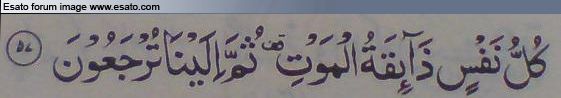 Esato forum image www.esato.com
كُلُّ نَفْسٍ ذَآئِقَةُ الْمَوْتِ ۟ ثُمَّ اِلَيْنَا تُرْجَعُوْنَ ﴿٥٧﴾